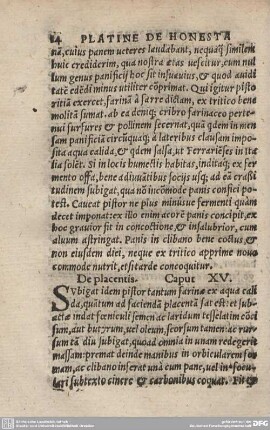 14 PLATINE DE HONESTA
nã, cuius panem ueteres laudabant, nequaꝗ̃ similem
huic crediderim, qua nostra ætas uescitur, cum nul
lum genus panificij hoc sit insuauius, & quod auidi
tate edẽdi minus utiliter cõprimat. Qui igitur pisto
ritiã exercet, farinã à farre dictam, ex tritico bene
molitã sumat. ab ea deniq; cribro farinaceo perte
nui furfures & pollinem secernat, quã ꝗdem in men
sam panificiã circũquaꝗ; à lateribus clausam impo
sita aqua calida, & ꝗdem salsa, ut Ferrariẽses in Ita
lia solẽt. Si in locis humectis habitas, inditaꝗ; ex fer
mento offa, bene adiuuãtibus socijs usꝗ; ad eã crassi
tudinem subigat, qua nõ incõmode panis confici po
test. Caueat pistor ne plus minusue fermenti quàm
decet imponat: ex illo enim acorẽ panis concipit, ex
hoc grauior fit in concoctione, & insalubrior, cum
aluum astringat. Panis in clibano bene coctus, &
non eiusdem diei, neque ex tritico apprime nouo
commode nutrit, et sitarde concoquitur.
De placentis. Caput XV.
SVbigat idem pistor tantum farinæ ex aqua cali
da, quãtum ad faciendã placentã sat est: et sub-
actæ indat fœniculi semen ac laridum tesselatim cõci
sum, aut butyrum, uel oleum, seorsum tamen: ac rur-
sum tã diu subigat, quoad omnia in unam redegerit
massam: premat deinde manibus in orbicularem for
mam, ac clibano inferat unà cum pane, uel in focu-
lari subtexto cinere & carbonibus coquat. Fit &